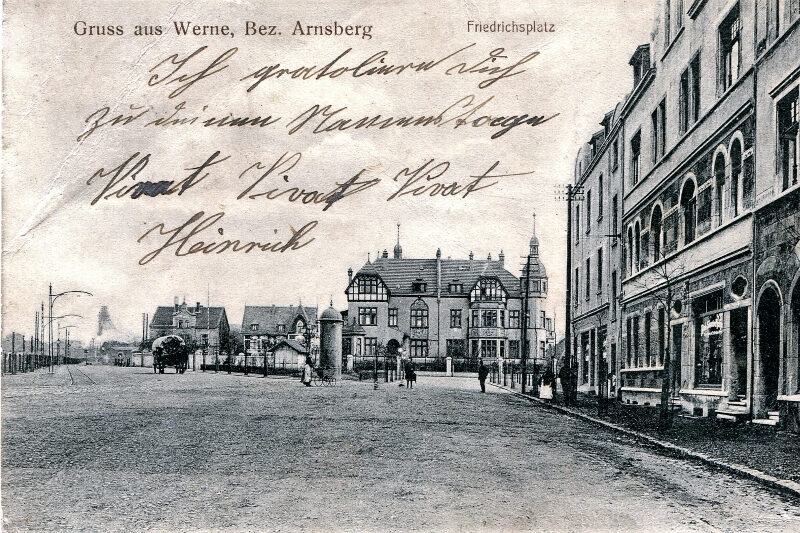 Gruss aus Werne, Bez. Arnsberg
Friedrichsplatz
Ich gratoliere dich
zu deinen Namenstage
Vivat Vivat Vivat
Heinrich